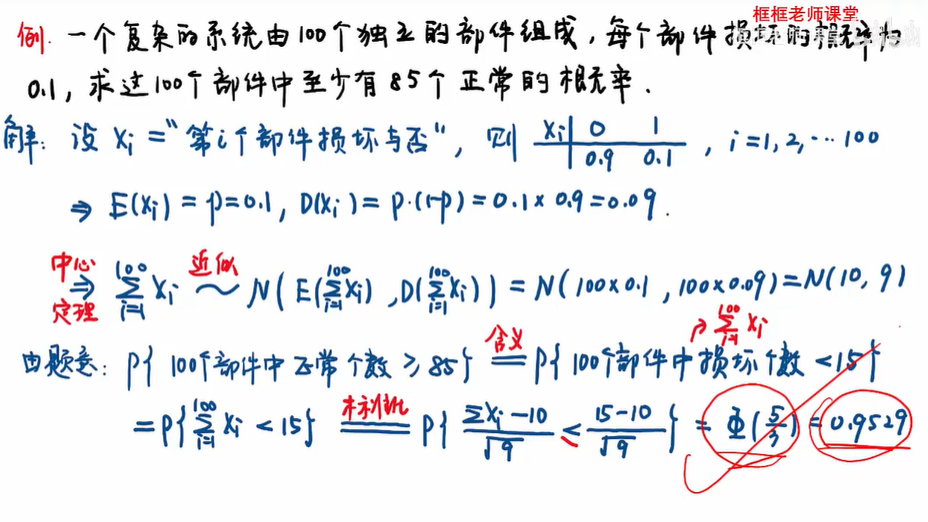 框框老师课堂
例. 一个复杂的系统由100个独立的部件组成，每个部件损坏的概率为
0.1，求这100个部件中至少有85个正常的概率.
解: 设 Xi = "第i个部件损坏与否"，则 Xi | 0 1 , i=1,2,…100
0.9 0.1
⇒ E(Xi) = p = 0.1, D(Xi) = p·(1-p) = 0.1×0.9 = 0.09.
中心 近似
⇒ ∑_{i=1}^{100} Xi ~ N( E(∑_{i=1}^{100} Xi) , D(∑_{i=1}^{100} Xi) ) = N(100×0.1, 100×0.09) = N(10, 9)
定理
含义 ∑_{i=1}^{100} Xi
由题意: P{ 100个部件中正常个数 ≥ 85} = P{ 100个部件中损坏个数 < 15}
标准化
= P{ ∑_{i=1}^{100} Xi < 15} = P{ (∑Xi - 10)/√9 < (15-10)/√9 } = Φ(5/3) = 0.9529